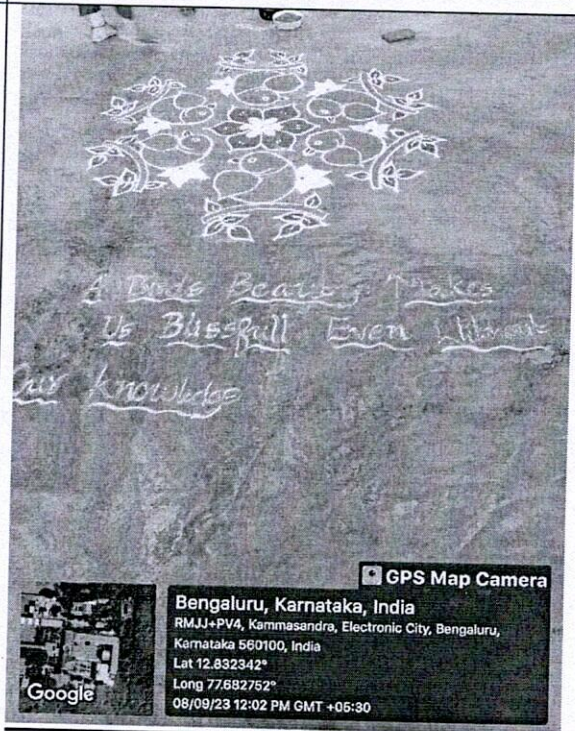 A Birds Beauty Makes
Us Blissfull Even Without
Our Knowledge
GPS Map Camera
Bengaluru, Karnataka, India
RMJJ+PV4, Kammasandra, Electronic City, Bengaluru,
Karnataka 560100, India
Lat 12.832342°
Long 77.682752°
08/09/23 12:02 PM GMT +05:30
Google